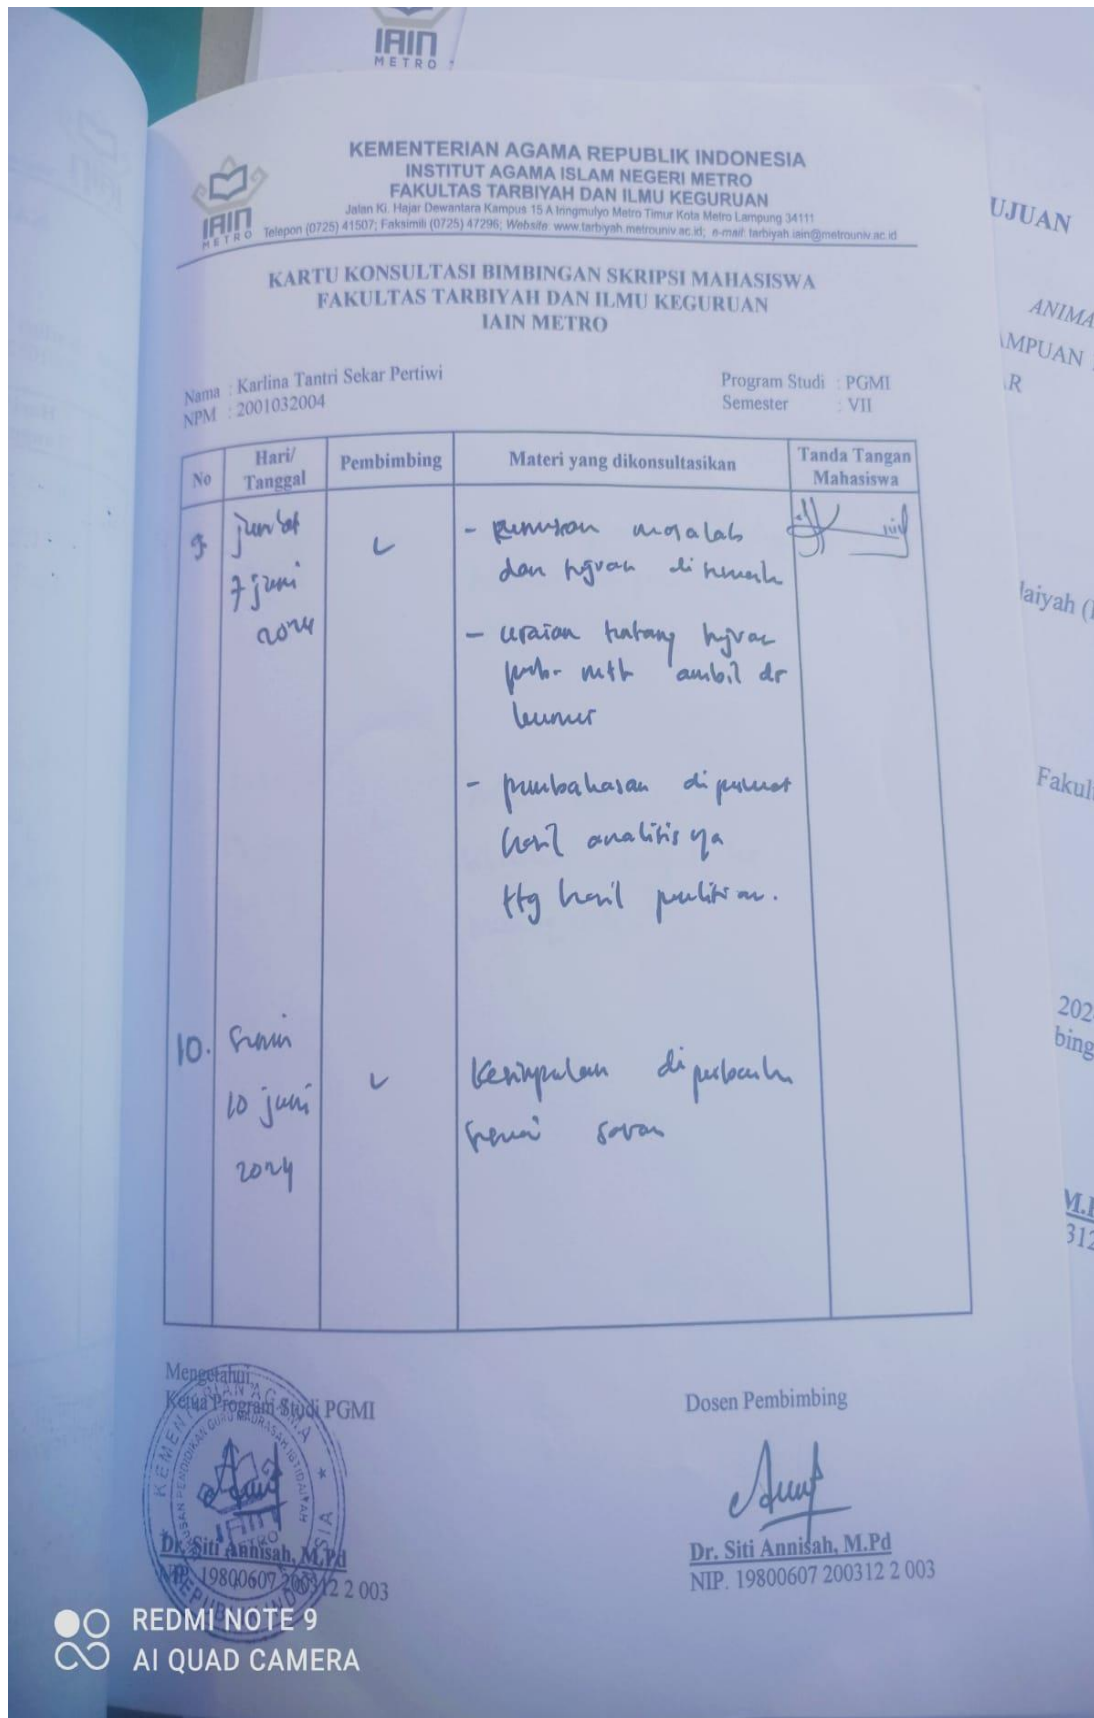 IAIN
METRO
KEMENTERIAN AGAMA REPUBLIK INDONESIA
INSTITUT AGAMA ISLAM NEGERI METRO
FAKULTAS TARBIYAH DAN ILMU KEGURUAN
Jalan Ki. Hajar Dewantara Kampus 15 A Iringmulyo Metro Timur Kota Metro Lampung 34111
Telepon (0725) 41507; Faksimili (0725) 47296; Website: www.tarbiyah.metrouniv.ac.id; e-mail: tarbiyah.iain@metrouniv.ac.id
IAIN
METRO
KARTU KONSULTASI BIMBINGAN SKRIPSI MAHASISWA
FAKULTAS TARBIYAH DAN ILMU KEGURUAN
IAIN METRO
Nama : Karlina Tantri Sekar Pertiwi
NPM : 2001032004
Program Studi : PGMI
Semester : VII
No
Hari/
Tanggal
Pembimbing
Materi yang dikonsultasikan
Tanda Tangan
Mahasiswa
9.
7 juni
2024
dan
- uraian tentang
ambil dr
- pembahasan
hasil analisisya
ttg hasil
10.
Senin
10 juni
2024
Kesimpulan
saran
Mengetahui
Ketua Program Studi PGMI
KEMENTERIAN AGAMA
REPUBLIK INDONESIA
Dr. Siti Annisah, M.Pd
NIP. 19800607 200312 2 003
Dosen Pembimbing
Dr. Siti Annisah, M.Pd
NIP. 19800607 200312 2 003
UJUAN
ANIMA
AMPUAN
AR
Fakul
202
bing
312
REDMI NOTE 9
AI QUAD CAMERA